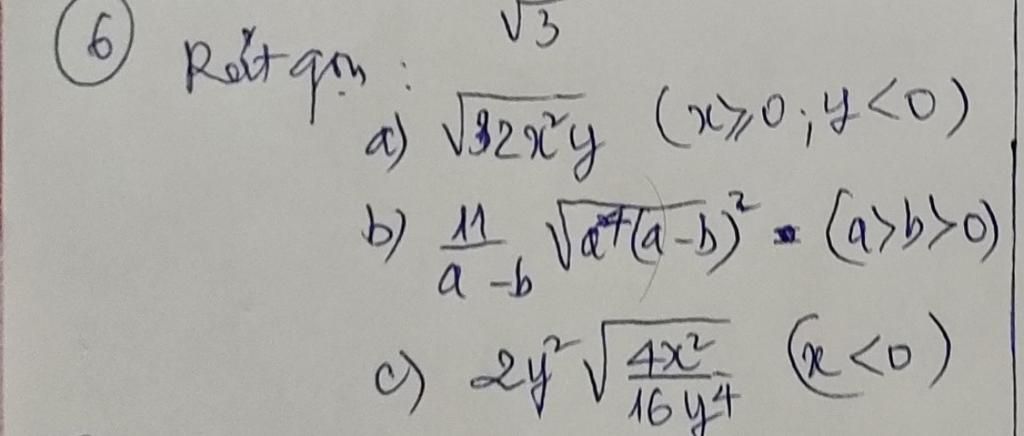 √3
6 Rút gọn :
a) √32x²y (x ⩾ 0 ; y < 0)
b) 11/(a-b) √a⁴(a-b)² (a > b > 0)
c) 2y² √(4x²/16y⁴) (x < 0)